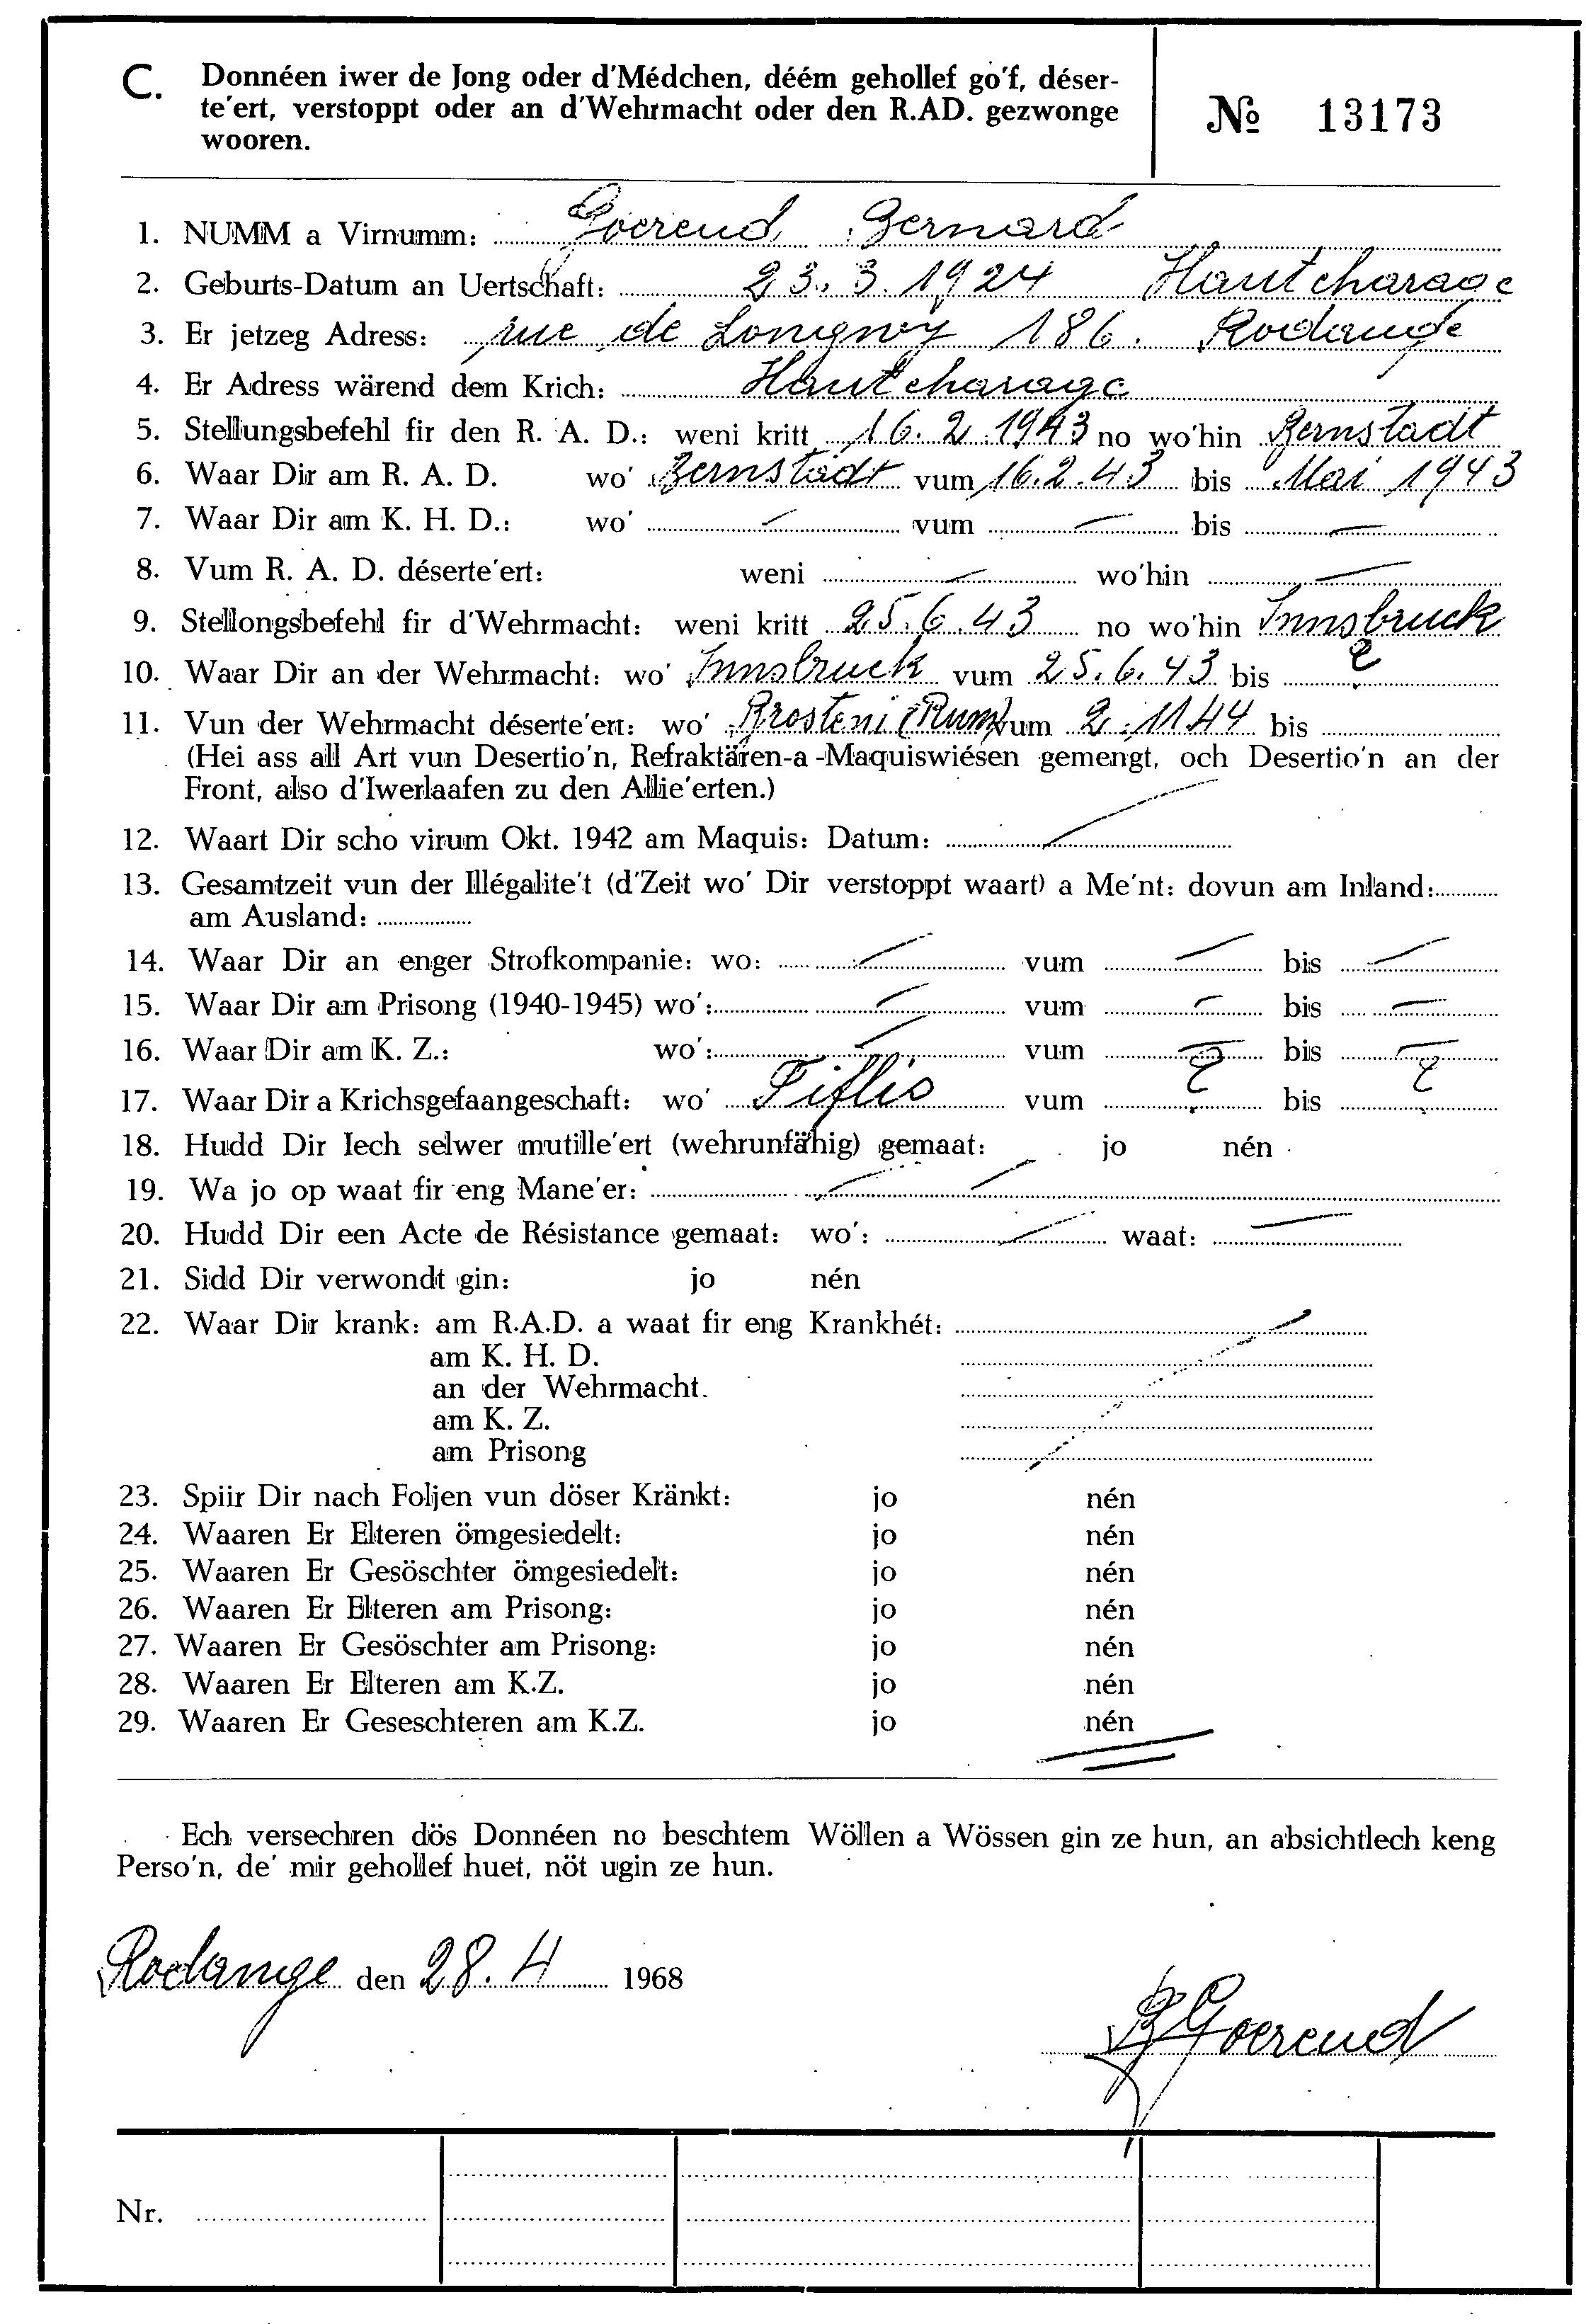 C. Donnéen iwer de Jong oder d'Médchen, déém gehollef go'f, déser-
te'ert, verstoppt oder an d'Wehrmacht oder den R.AD. gezwonge
wooren.
№ 13173
1. NUMM a Virnumm: Goerend Bernard
2. Geburts-Datum an Uertschaft: 23. 3. 1924 Hautcharage
3. Er jetzeg Adress: rue de Longwy 186. Rodange
4. Er Adress wärend dem Krich: Hautcharage
5. Stellungsbefehl fir den R. A. D.: weni kritt 16. 2. 1943 no wo'hin Bernstadt
6. Waar Dir am R. A. D. wo' Bernstadt vum 16.2.43 bis Mai 1943
7. Waar Dir am K. H. D.: wo' — vum — bis —
8. Vum R. A. D. déserte'ert: weni — wo'hin —
9. Stellongsbefehl fir d'Wehrmacht: weni kritt 25.6.43 no wo'hin Innsbruck
10. Waar Dir an der Wehrmacht: wo' Innsbruck vum 25.6.43 bis ?
11. Vun der Wehrmacht déserte'ert: wo' Brosteni (Rum) vum 2.11.44 bis
(Hei ass all Art vun Desertio'n, Refraktären-a-Maquiswiésen gemengt, och Desertio'n an der
Front, also d'Iwerlaafen zu den Allie'erten.)
12. Waart Dir scho virum Okt. 1942 am Maquis: Datum: —
13. Gesamtzeit vun der Illégalite't (d'Zeit wo' Dir verstoppt waart) a Me'nt: dovun am Inland:
am Ausland:
14. Waar Dir an enger Strofkompanie: wo: — vum — bis —
15. Waar Dir am Prisong (1940-1945) wo': — vum — bis —
16. Waar Dir am K. Z.: wo': — vum — bis —
17. Waar Dir a Krichsgefaangeschaft: wo' Tiflis vum ? bis ?
18. Hudd Dir Iech selwer mutille'ert (wehrunfähig) gemaat: jo nén
19. Wa jo op waat fir eng Mane'er: — —
20. Hudd Dir een Acte de Résistance gemaat: wo': — waat: —
21. Sidd Dir verwondt gin: jo nén
22. Waar Dir krank: am R.A.D. a waat fir eng Krankhét:
am K. H. D.
an der Wehrmacht.
am K. Z.
am Prisong
23. Spiir Dir nach Foljen vun döser Kränkt: jo nén
24. Waaren Er Elteren ömgesiedelt: jo nén
25. Waaren Er Gesöschter ömgesiedelt: jo nén
26. Waaren Er Elteren am Prisong: jo nén
27. Waaren Er Gesöschter am Prisong: jo nén
28. Waaren Er Elteren am K.Z. jo nén
29. Waaren Er Geseschteren am K.Z. jo nén
Ech versechren dös Donnéen no beschtem Wöllen a Wössen gin ze hun, an absichtlech keng
Perso'n, de' mir gehollef huet, nöt ugin ze hun.
Rodange den 28. 4 1968
B Goerend
Nr.